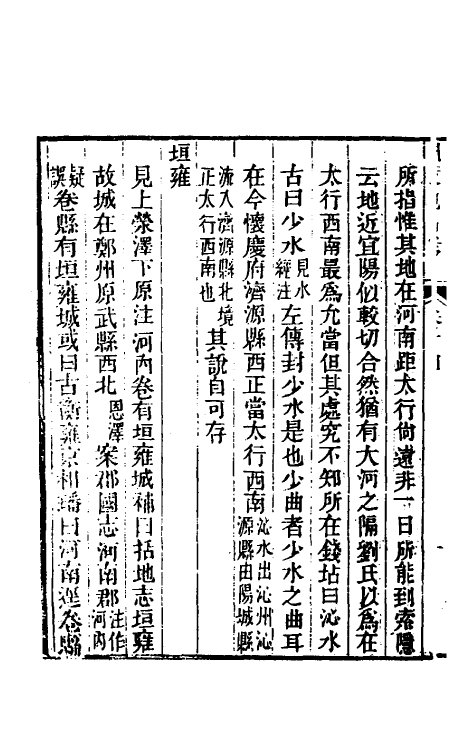 所指惟其地在河南距太行尙遠非一日所能到索隱
云地近宜陽似較切合然猶有大河之隔劉氏以爲在
太行西南最爲允當但其處究不知所在錢坫曰沁水
古曰少水見水經注左傳封少水是也少曲者少水之曲耳
在今懷慶府濟源縣西正當太行西南沁水出沁州沁源縣由陽城縣
流入濟源縣北境正太行西南也其說自可存
垣雍
見上滎澤下原注河內卷有垣雍城補曰括地志垣雍
故城在鄭州原武縣西北恩澤案郡國志河南郡注作河內
疑誤卷縣有垣雍城或曰古衡雍京相璠曰河南運卷縣